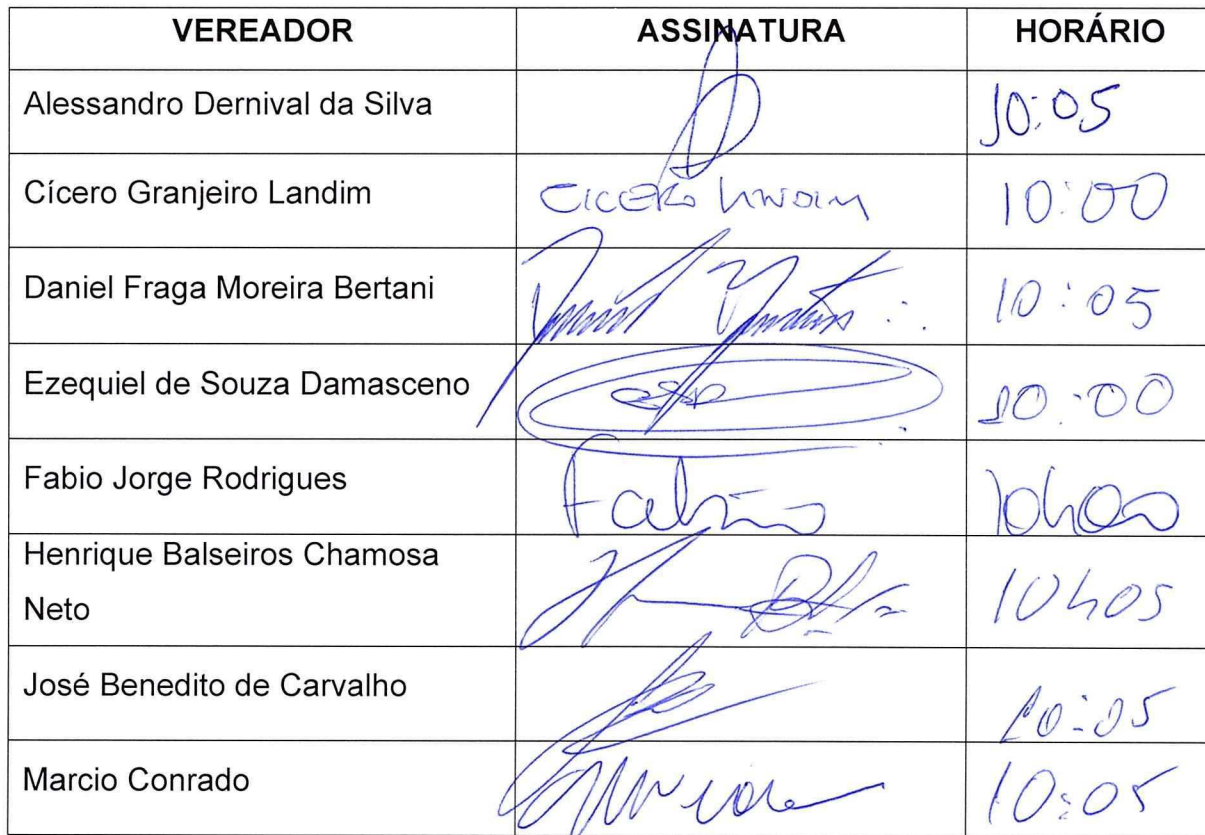 VEREADOR ASSINATURA HORÁRIO
Alessandro Dernival da Silva 10:05
Cícero Granjeiro Landim CICERO LANDIM 10:00
Daniel Fraga Moreira Bertani 10:05
Ezequiel de Souza Damasceno 10:00
Fabio Jorge Rodrigues Fabio 10h00
Henrique Balseiros Chamosa
Neto 10h05
José Benedito de Carvalho 10:05
Marcio Conrado 10:05